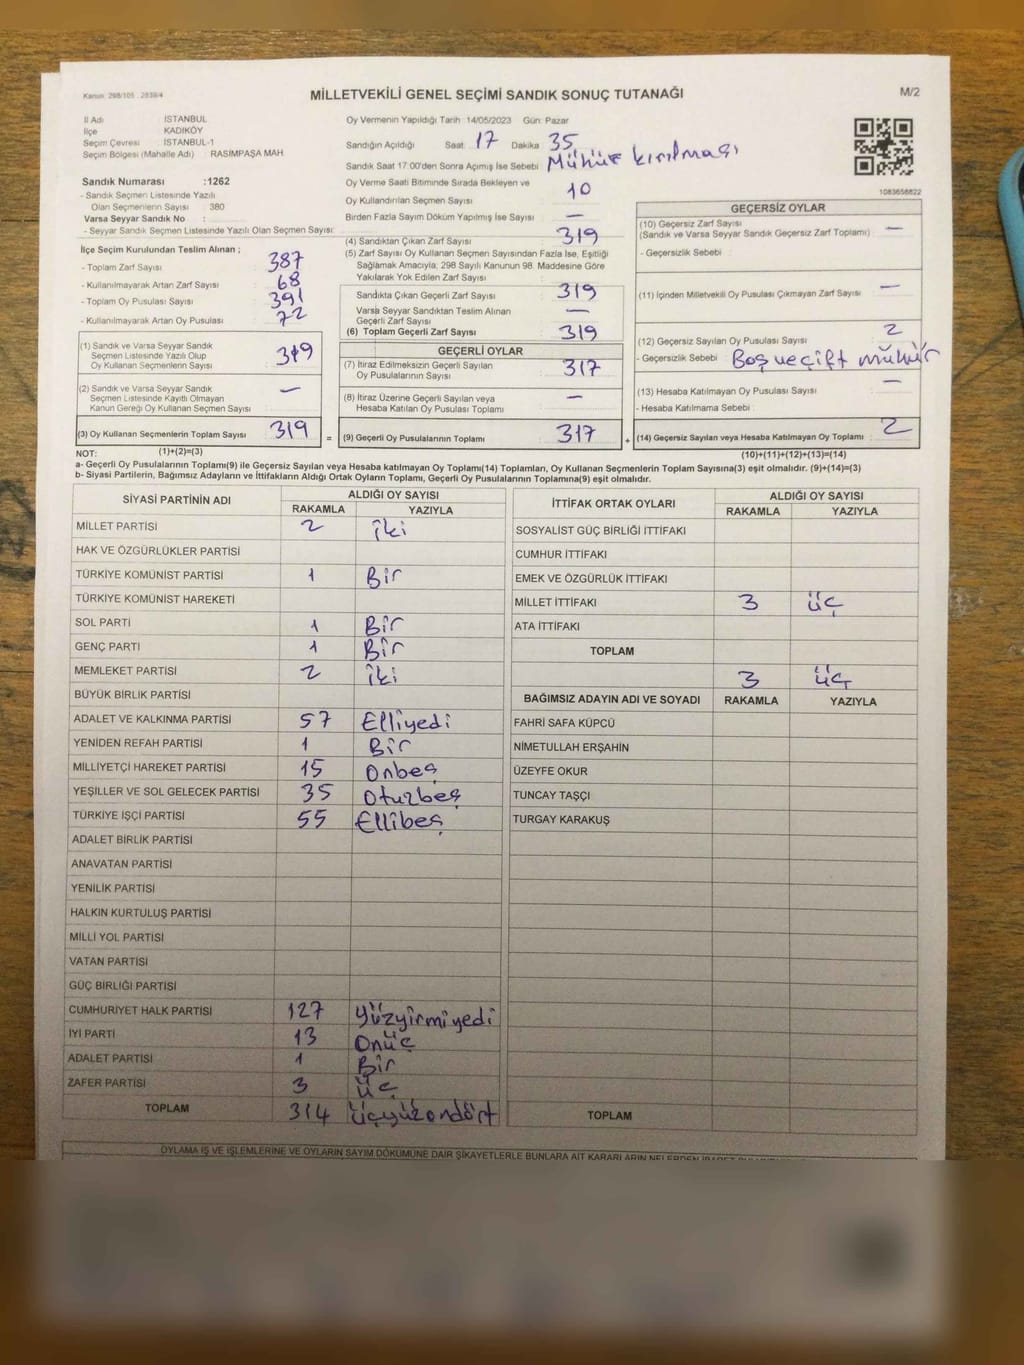 Kanun: 298/105 , 2839/4
MİLLETVEKİLİ GENEL SEÇİMİ SANDIK SONUÇ TUTANAĞI
M/2
İl Adı İSTANBUL
İlçe KADIKÖY
Seçim Çevresi İSTANBUL-1
Seçim Bölgesi (Mahalle Adı) RASİMPAŞA MAH.
Sandık Numarası :1262
- Sandık Seçmen Listesinde Yazılı
Olan Seçmenlerin Sayısı 380
Varsa Seyyar Sandık No :
- Seyyar Sandık Seçmen Listesinde Yazılı Olan Seçmen Sayısı:
Oy Vermenin Yapıldığı Tarih :14/05/2023 Gün: Pazar
Sandığın Açıldığı Saat: 17 Dakika 35
Sandık Saat 17:00'den Sonra Açımış İse Sebebi: Mühür kırılması
Oy Verme Saati Bitiminde Sırada Bekleyen ve
Oy Kullandırılan Seçmen Sayısı 10
Birden Fazla Sayım Döküm Yapılmış İse Sayısı —
1083658822
İlçe Seçim Kurulundan Teslim Alınan ;
- Toplam Zarf Sayısı 387
- Kullanılmayarak Artan Zarf Sayısı 68
- Toplam Oy Pusulası Sayısı 391
- Kullanılmayarak Artan Oy Pusulası 72
(1) Sandık ve Varsa Seyyar Sandık
Seçmen Listesinde Yazılı Olup
Oy Kullanan Seçmenlerin Sayısı 319
(2) Sandık ve Varsa Seyyar Sandık
Seçmen Listesinde Kayıtlı Olmayan
Kanun Gereği Oy Kullanan Seçmen Sayısı —
(3) Oy Kullanan Seçmenlerin Toplam Sayısı 319
(4) Sandıktan Çıkan Zarf Sayısı 319
(5) Zarf Sayısı Oy Kullanan Seçmen Sayısından Fazla İse, Eşitliği
Sağlamak Amacıyla, 298 Sayılı Kanunun 98. Maddesine Göre
Yakılarak Yok Edilen Zarf Sayısı
Sandıkta Çıkan Geçerli Zarf Sayısı 319
Varsa Seyyar Sandıktan Teslim Alınan
Geçerli Zarf Sayısı —
(6) Toplam Geçerli Zarf Sayısı 319
GEÇERLİ OYLAR
(7) İtiraz Edilmeksizin Geçerli Sayılan
Oy Pusulalarının Sayısı 317
(8) İtiraz Üzerine Geçerli Sayılan veya
Hesaba Katılan Oy Pusulası Toplamı —
= (9) Geçerli Oy Pusulalarının Toplamı 317
GEÇERSİZ OYLAR
(10) Geçersiz Zarf Sayısı
(Sandık ve Varsa Seyyar Sandık Geçersiz Zarf Toplamı) —
- Geçersizlik Sebebi :
(11) İçinden Milletvekili Oy Pusulası Çıkmayan Zarf Sayısı —
(12) Geçersiz Sayılan Oy Pusulası Sayısı 2
- Geçersizlik Sebebi : Boş ve çift mühür
(13) Hesaba Katılmayan Oy Pusulası Sayısı —
- Hesaba Katılmama Sebebi :
+ (14) Geçersiz Sayılan veya Hesaba Katılmayan Oy Toplamı 2
NOT: (1)+(2)=(3) (10)+(11)+(12)+(13)=(14)
a- Geçerli Oy Pusulalarının Toplamı(9) ile Geçersiz Sayılan veya Hesaba katılmayan Oy Toplamı(14) Toplamları, Oy Kullanan Seçmenlerin Toplam Sayısına(3) eşit olmalıdır. (9)+(14)=(3)
b- Siyasi Partilerin, Bağımsız Adayların ve İttifakların Aldığı Ortak Oyların Toplamı, Geçerli Oy Pusulalarının Toplamına(9) eşit olmalıdır.
SİYASİ PARTİNİN ADI ALDIĞI OY SAYISI
RAKAMLA YAZIYLA
MİLLET PARTİSİ 2 iki
HAK VE ÖZGÜRLÜKLER PARTİSİ
TÜRKİYE KOMÜNİST PARTİSİ 1 Bir
TÜRKİYE KOMÜNİST HAREKETİ
SOL PARTİ 1 Bir
GENÇ PARTİ 1 Bir
MEMLEKET PARTİSİ 2 iki
BÜYÜK BİRLİK PARTİSİ
ADALET VE KALKINMA PARTİSİ 57 Elliyedi
YENİDEN REFAH PARTİSİ 1 Bir
MİLLİYETÇİ HAREKET PARTİSİ 15 Onbeş
YEŞİLLER VE SOL GELECEK PARTİSİ 35 Oturbeş
TÜRKİYE İŞÇİ PARTİSİ 55 Ellibeş
ADALET BİRLİK PARTİSİ
ANAVATAN PARTİSİ
YENİLİK PARTİSİ
HALKIN KURTULUŞ PARTİSİ
MİLLİ YOL PARTİSİ
VATAN PARTİSİ
GÜÇ BİRLİĞİ PARTİSİ
CUMHURİYET HALK PARTİSİ 127 Yüzyirmiyedi
İYİ PARTİ 13 Onüç
ADALET PARTİSİ 1 Bir
ZAFER PARTİSİ 3 üç
TOPLAM 314 üçyüzondört
İTTİFAK ORTAK OYLARI ALDIĞI OY SAYISI
RAKAMLA YAZIYLA
SOSYALİST GÜÇ BİRLİĞİ İTTİFAKI
CUMHUR İTTİFAKI
EMEK VE ÖZGÜRLÜK İTTİFAKI
MİLLET İTTİFAKI 3 üç
ATA İTTİFAKI
TOPLAM 3 üç
BAĞIMSIZ ADAYIN ADI VE SOYADI RAKAMLA YAZIYLA
FAHRİ SAFA KÜPCÜ
NİMETULLAH ERŞAHİN
ÜZEYFE OKUR
TUNCAY TAŞÇI
TURGAY KARAKUŞ
TOPLAM
OYLAMA İŞ VE İŞLEMLERİNE VE OYLARIN SAYIM DÖKÜMÜNE DAİR ŞİKAYETLERLE BUNLARA AİT KARARLARIN NELERDEN